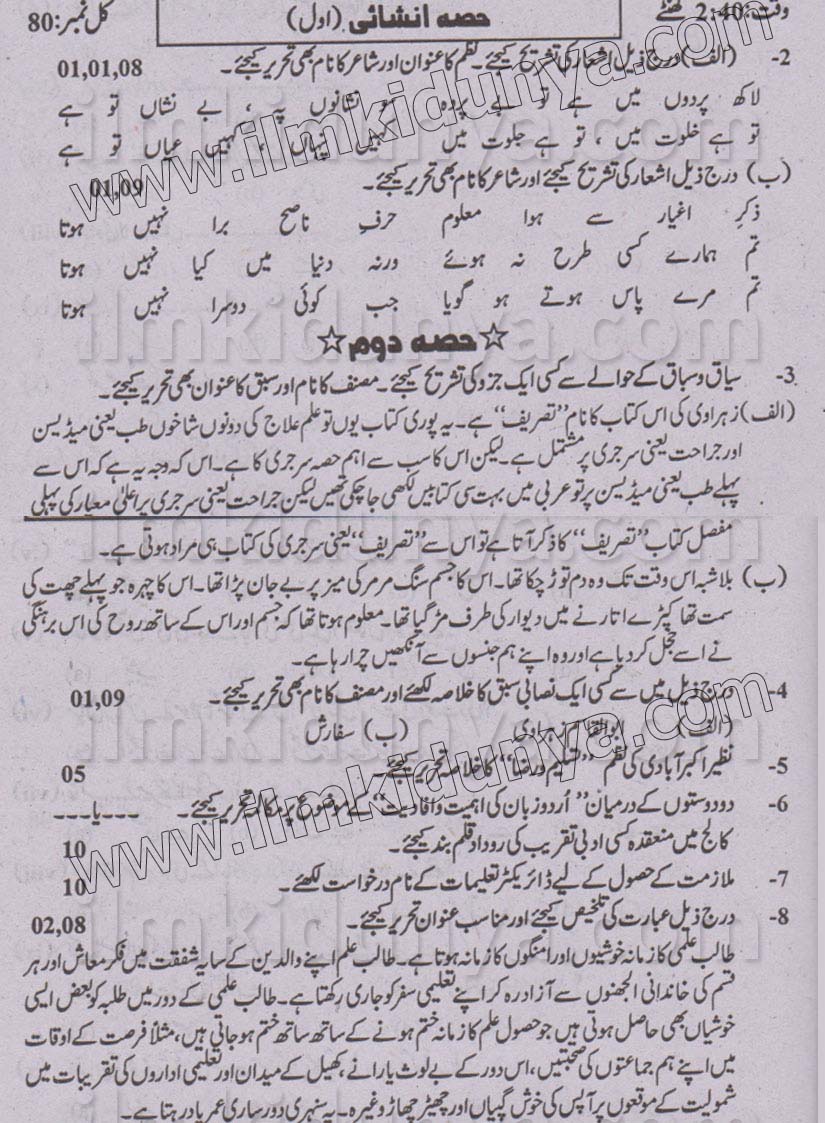 وقت: 2:40 گھنٹے
حصہ انشائی (اول)
کل نمبر: 80
2- (الف) درج ذیل اشعار کی تشریح کیجئے۔ نظم کا عنوان اور شاعر کا نام بھی تحریر کیجئے۔ 01,01,08
لاکھ پردوں میں ہے تو بے پردہ سو نشانوں پہ، بے نشاں تو ہے
تو ہے خلوت میں، تو ہے جلوت میں کہیں پنہاں، کہیں عیاں تو ہے
(ب) درج ذیل اشعار کی تشریح کیجئے اور شاعر کا نام بھی تحریر کیجئے۔ 01,09
ذکر اغیار سے ہوا معلوم حرفِ ناصح برا نہیں ہوتا
تم ہمارے کسی طرح نہ ہوئے ورنہ دنیا میں کیا نہیں ہوتا
تم مرے پاس ہوتے ہو گویا جب کوئی دوسرا نہیں ہوتا
☆حصہ دوم☆
3- سیاق و سباق کے حوالے سے کسی ایک جزو کی تشریح کیجئے۔ مصنف کا نام اور سبق کا عنوان بھی تحریر کیجئے۔
(الف) زہراوی کی اس کتاب کا نام "تصریف" ہے۔ یہ پوری کتاب یوں تو علم علاج کی دونوں شاخوں طب یعنی میڈیسن
اور جراحت یعنی سرجری پر مشتمل ہے۔ لیکن اس کا سب سے اہم حصہ سرجری کا ہے۔ اس کہ وجہ یہ ہے کہ اس سے
پہلے طب یعنی میڈیسن پر تو عربی میں بہت سی کتابیں لکھی جا چکی تھیں لیکن جراحت یعنی سرجری پر اعلیٰ معیار کی پہلی
مفصل کتاب "تصریف" کا ذکر آتا ہے تو اس سے "تصریف" یعنی سرجری کی کتاب ہی مراد ہوتی ہے۔
(ب) بلاشبہ اس وقت تک وہ دم توڑ چکا تھا۔ اس کا جسم سنگ مرمر کی میز پر بے جان پڑا تھا۔ اس کا چہرہ جو پہلے چھت کی
سمت تھا کپڑے اتارنے میں دیوار کی طرف مڑ گیا تھا۔ معلوم ہوتا تھا کہ جسم اور اس کے ساتھ روح کی اس برہنگی
نے اسے خجل کر دیا ہے اور وہ اپنے ہم جنسوں سے آنکھیں چرا رہا ہے۔
4- درج ذیل میں سے کسی ایک نصابی سبق کا خلاصہ لکھئے اور مصنف کا نام بھی تحریر کیجئے۔ 01,09
(الف) ابوالقاسم زہراوی (ب) سفارش
5- نظیر اکبر آبادی کی نظم "تسلیم و رضا" کا خلاصہ تحریر کیجئے۔ 05
6- دو دوستوں کے درمیان "اُردو زبان کی اہمیت و افادیت" کے موضوع پر مکالمہ تحریر کیجئے۔ ---یا---
کالج میں منعقدہ کسی ادبی تقریب کی روداد قلم بند کیجئے۔ 10
7- ملازمت کے حصول کے لیے ڈائریکٹر تعلیمات کے نام درخواست لکھئے۔ 10
8- درج ذیل عبارت کی تلخیص کیجئے اور مناسب عنوان تحریر کیجئے۔ 02,08
طالب علمی کا زمانہ خوشیوں اور امنگوں کا زمانہ ہوتا ہے۔ طالب علم اپنے والدین کے سایہ شفقت میں فکر معاش اور ہر
قسم کی خاندانی الجھنوں سے آزاد رہ کر اپنے تعلیمی سفر کو جاری رکھتا ہے۔ طالب علمی کے دور میں طلبہ کو بعض ایسی
خوشیاں بھی حاصل ہوتی ہیں جو حصول علم کا زمانہ ختم ہونے کے ساتھ ساتھ ختم ہو جاتی ہیں، مثلاً فرصت کے اوقات
میں اپنے ہم جماعتوں کی صحبتیں، اس دور کے بے لوث یارانے، کھیل کے میدان اور تعلیمی اداروں کی تقریبات میں
شمولیت کے موقعوں پر آپس کی خوش گپیاں اور چھیڑ چھاڑ وغیرہ۔ یہ سنہری دور ساری عمر یاد رہتا ہے۔
www.ilmkidunya.com
www.ilmkidunya.com
ilmkidunya.com
ilmkidunya.com
ilmkidunya.com
ilmkidunya.com
ilmkidunya.com